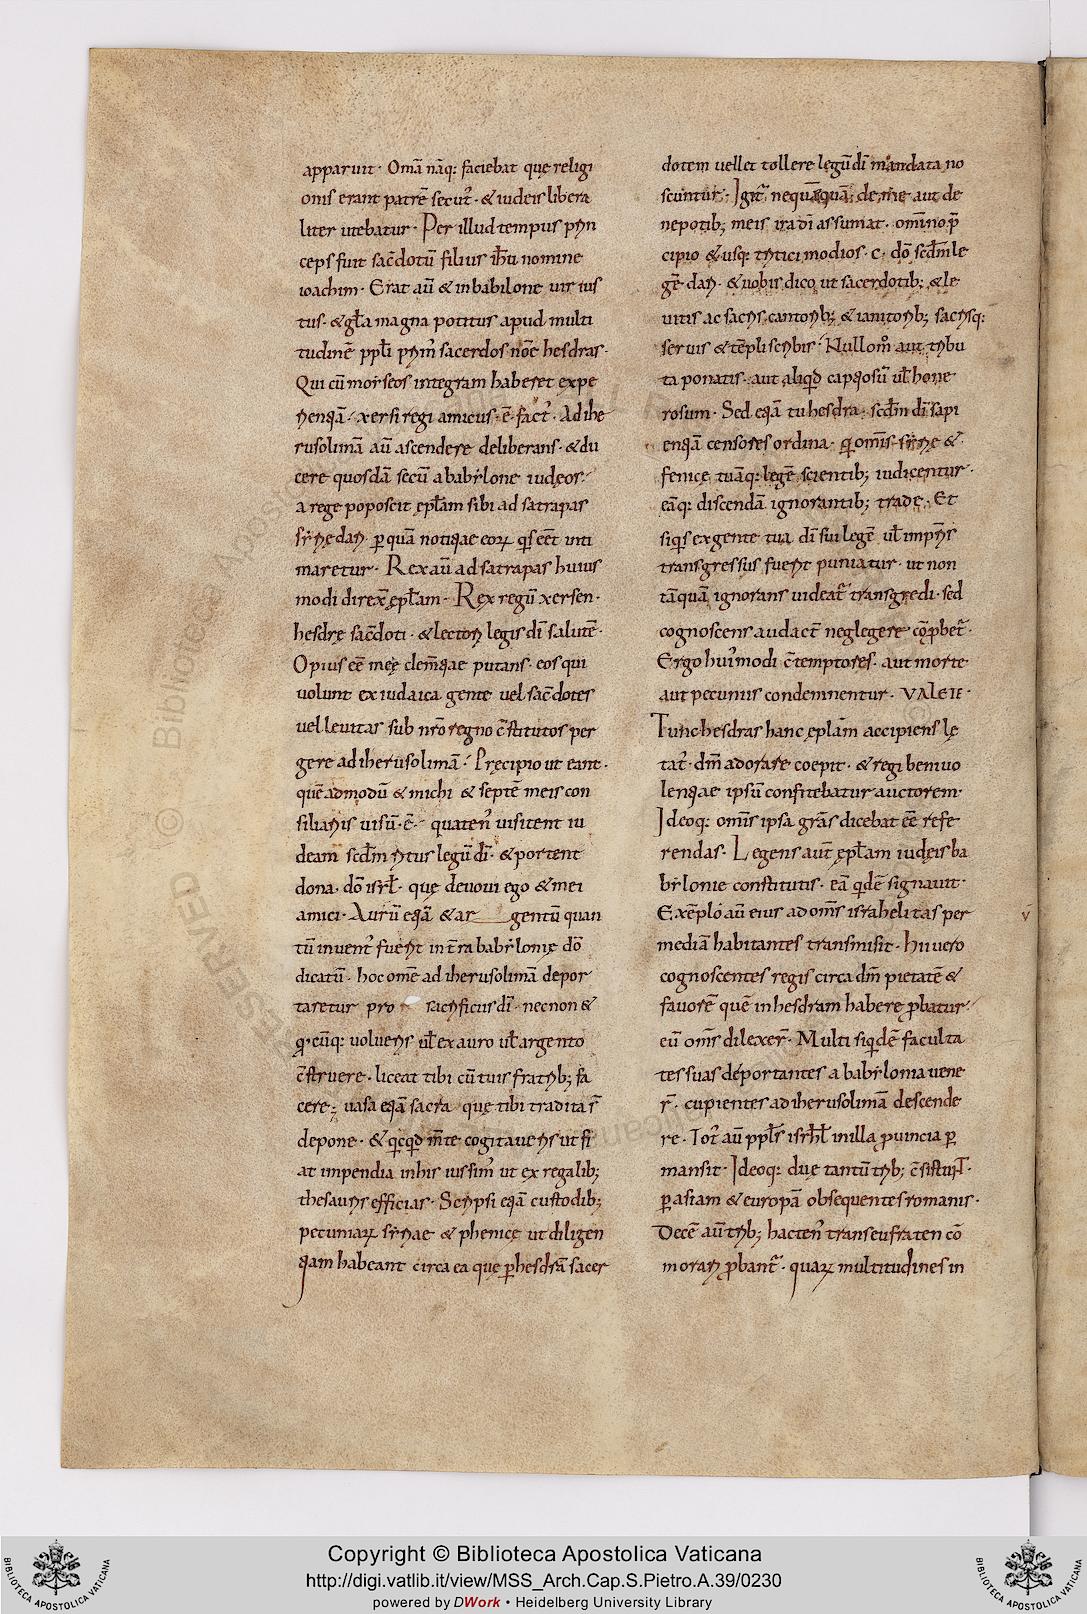 apparuit· Om̄a nāq: faciebat quę religi
onis erant patrē secut᾽· & iudeis libera
liter utebatur· Per illud tempus prin
ceps fuit sac̄dotū filius ih̄u nomine
ioachim· Erat aū & in babilone uir ius
tus· & gl̄a magna potitus apud multi
tudinē ppl̄i prim᾽ sacerdos nōe hesdras·
Qui cū moyseos integram haberet expe
rientiā· xersi regi amicus· ē· fact᾽· Ad ihe
rusolimā aū ascendere deliberans· & du
cere quosdā secū a babylone iudeos·
a rege poposcit ępl̄am sibi ad satrapas
syrię dari· p̱ quā notitiae eoꝝ q¹s eēt inti
maretur· Rex aū ad satrapas huius
modi direx̄ ępl̄am· Rex regū xersen·
hesdrę sac̄doti· & lectori legis dī salutē·
Opius eē meę clem̄tiae putans· eos qui
uolunt ex iudaica gente uel sac̄dotes
uel leuitas sub nr̄o regno c̄stitutos per
gere ad iherusolimā· Pręcipio ut eant·
quē admodū & michi & septē meis con
siliariis uisū· ē· quaten᾽ uisitent iu
deam scd̄m ritus legū dī· & portent
dona· dō isrl̄· quę deuoui ego & mei
amici· Aurū etiā & ar gentū quan
tū inuent᾽ fuerit in t̄ra babylonię dō
dicatū· hoc om̄e ad iherusolimā depor
taretur pro sacrificiis dī· necnon &
q cūq: uolueris ul̄ ex auro ul̄ argento
c̄struere· liceat tibi cū tuis fratrib; fa
cere; uasa etiā sacra quę tibi tradita s̄
depone· & q¹cq¹d m̄te cogitaueris ut fi
at impendia in his iussim᾽ ut ex regalib;
thesauris efficias· Scripsi etiā custodib;
pecuniaꝝ syriae & phenicę ut diligen
tiam habeant circa ea quę p̱ hesdrā sacer
dotem uellet tollere legū dī mandata no
scuntur· Igit᾽ nequāquā de me aut de
nepotib; meis ira dī assumat· om̄ino p̄
cipio & usq: tritici modios· c· dō scd̄m le
gē· dari· & uobis dico ut sacerdotib; & le
uitis ac sacris cantorib; & ianitorib; sacrisq:
seruis & tēpli scribis· Nullom° aut tribu
ta ponatis· aut aliq¹d captiosū ul̄ hone
rosum· Sed etiā tu hesdra· scd̄m dī sapi
entiā censores ordina· qi om̄is syrię &
fenicę tuāq: legē scientib; iudicentur·
eāq: discendā ignorantib; trade· Et
siq¹s ex gente tua dī sui legē ul̄ imperiis
transgressus fuerit puniatur· ut non
tāquā ignorans uideat᾽ transgredi· sed
cognoscens audact̄ neglegere cōp̱bet᾽·
Ergo hui᾽modi c̄temptores· aut morte
aut pecuniis condemnentur· VALETE·
Tunc hesdras hanc ępl̄am accipiens lę
tat᾽· dm̄ adorare coepit· & regi beniuo
lentiae ipsū confitebatur auctorem·
Ideoq: om̄is ipsa gr̄as dicebat eē refe
rendas· Legens aūt ępl̄am iudęis ba
bylonie constitutis· eā q¹dē signauit·
Exēplo aū eius ad om̄s israhelitas per
mediā habitantes transmisit· Hii uero
cognoscentes regis circa dm̄ pietatē &
fauorē quē in hesdram habere ꝓbatur·
eū om̄s dilexer̄· Multi siq¹dē faculta
tes suas deportantes a babylonia uene
r̄· cupientes ad iherusolimā descende
re· Tot᾽ aū ppl̄s isrl̄ in illa ꝓuincia p̱
mansit· Ideoq: duę tantū trib; c̄sistunt·
p̱ asiam & europā obsequentes romanis·
Decē aū trib; hacten᾽ trans eufraten cō
morari ꝓbant᾽· quaꝝ multitudines in
v̄
Copyright © Biblioteca Apostolica Vaticana
http://digi.vatlib.it/view/MSS_Arch.Cap.S.Pietro.A.39/0230
powered by DWork • Heidelberg University Library
BIBLIOTECA APOSTOLICA VATICANA
BIBLIOTECA APOSTOLICA VATICANA